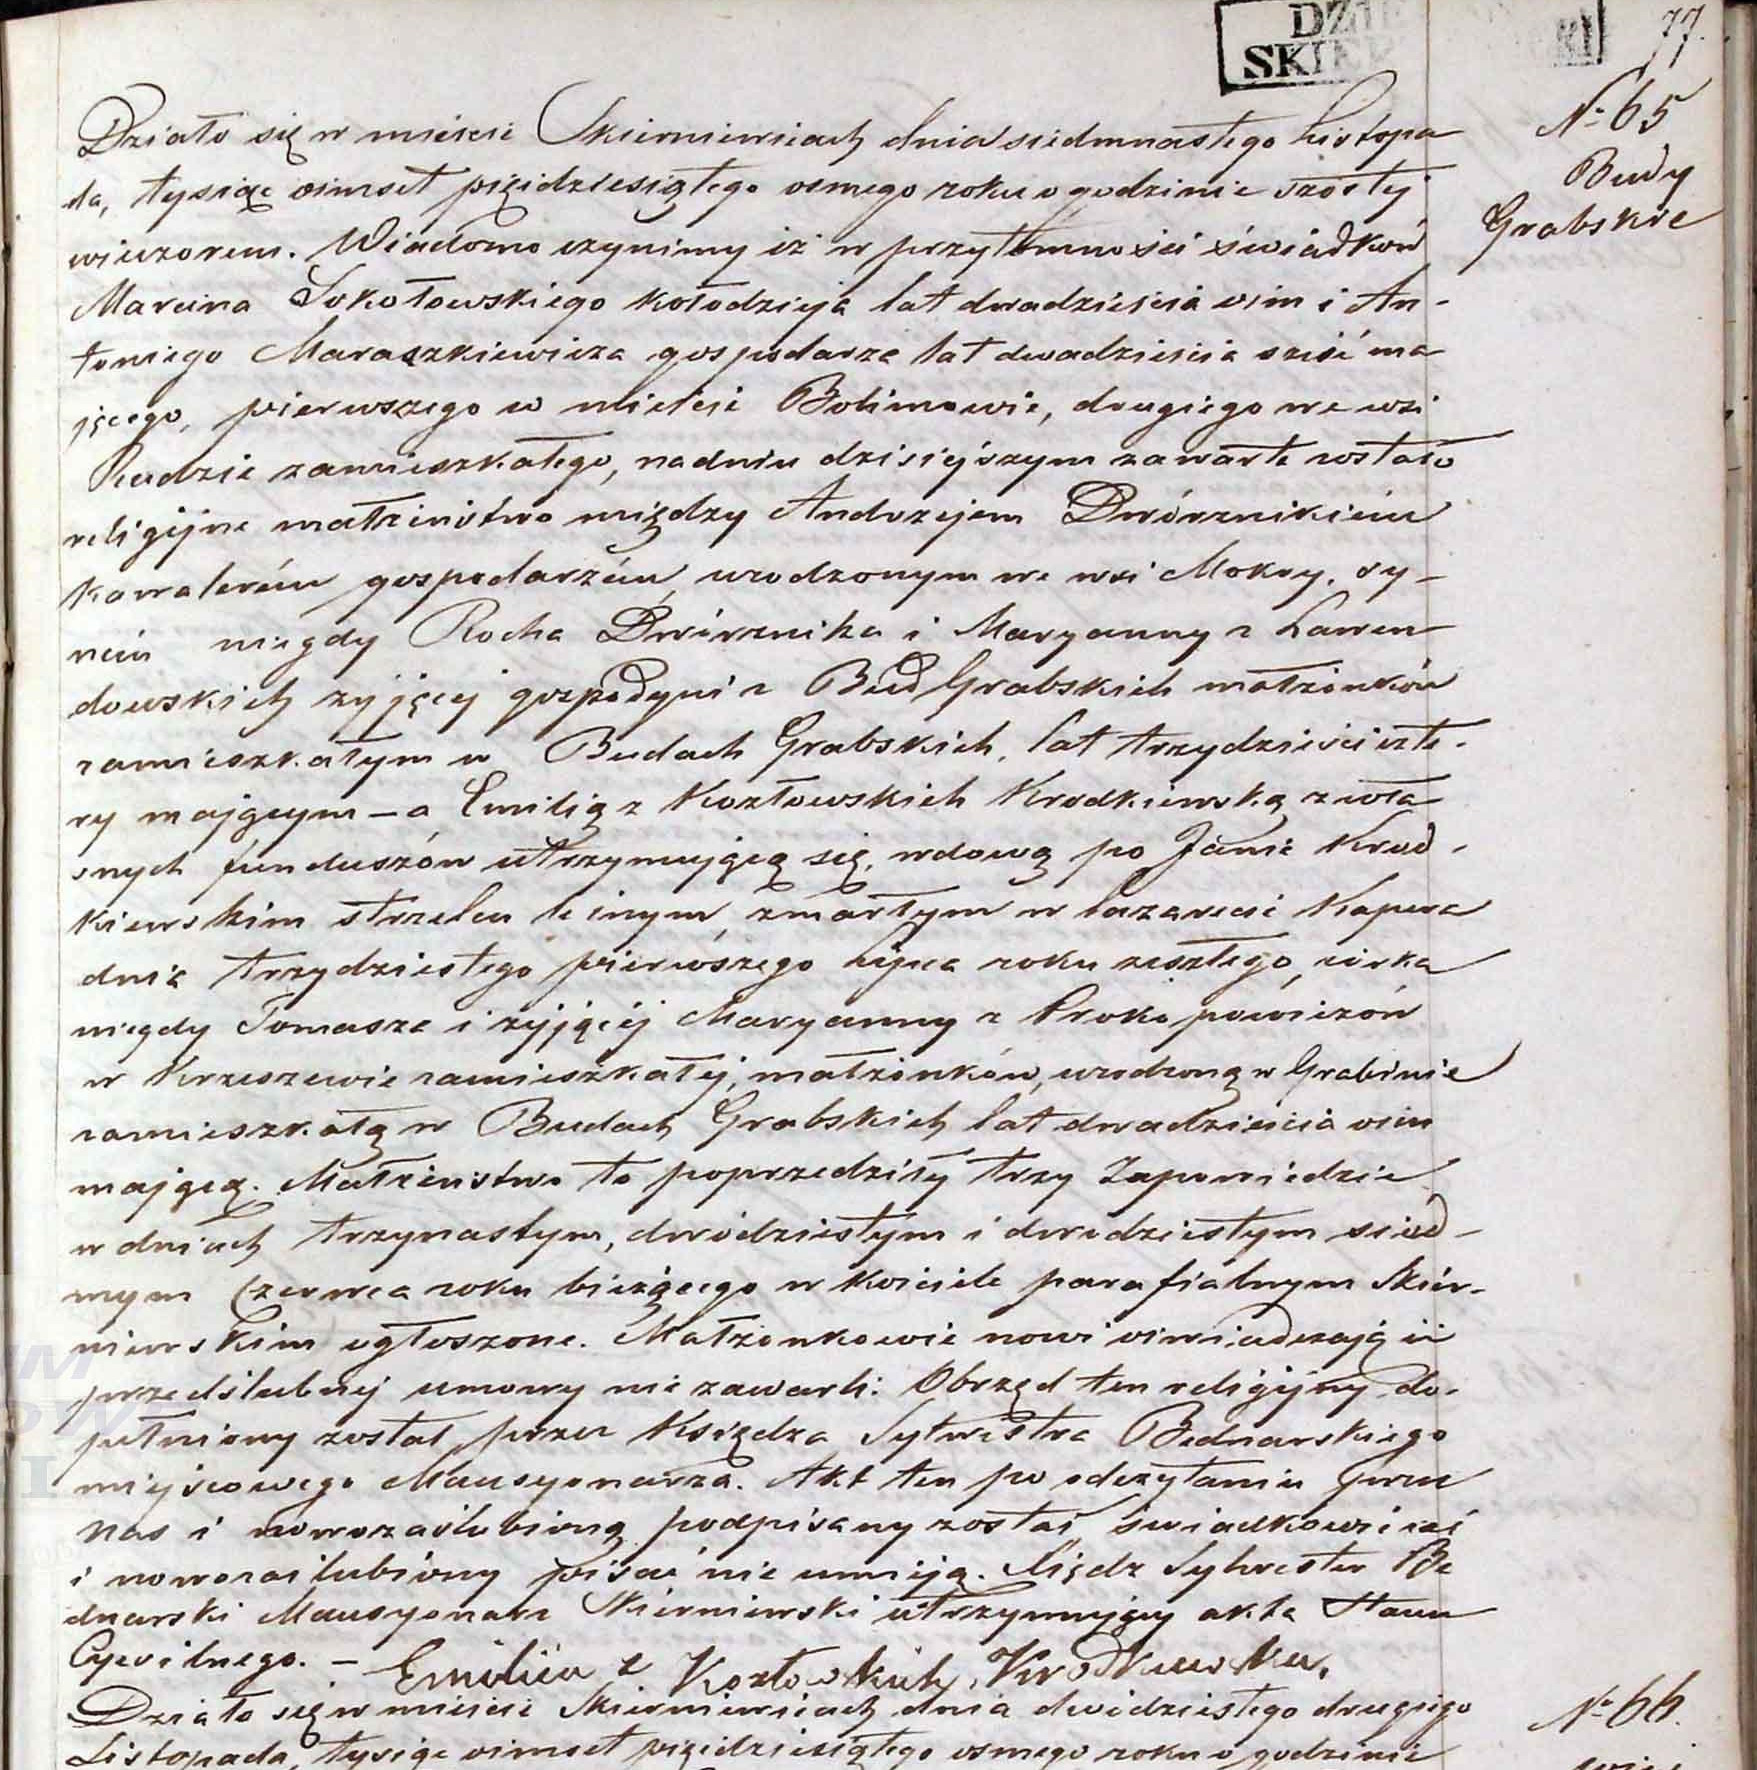 77.
DZIE
SKIE
KI
№ 65
Budy
Grabskie
Działo się w mieście Skierniewicach dnia siedmnastego Listopa
da, tysiąc ośmset pięćdziesiątego osmego roku o godzinie szóstej
wieczorem. Wiadomo czynimy iż w przytomności świadków
Marcina Sokołowskiego kołodzieja lat dwadzieścia ośm i An-
toniego Maraszkiewicza gospodarza lat dwadzieścia sześć ma
jącego, pierwszego w mieście Bolimowie, drugiego we wsi
Rudzie zamieszkałego, na dniu dzisiejszym zawarte zostało
religijne małżeństwo między Andrzejem Dwórznikiém
kawalerém gospodarzém, urodzonym we wsi Mokry, sy-
ném niegdy Rocha Dwórznika i Maryanny z Lawen
dowskich żyjącej gospodyni z Bud Grabskich małżonków
zamieszkałym w Budach Grabskich, lat trzydzieści czte-
ry mającym – a Emilią z Kozłowskich Krodkiewską z wła
snych funduszów utrzymującą się, wdową po Janie Krod-
kiewskim strzelcu leśnym, zmarłym w lazarecie
dnia trzydziestego pierwszego Lipca roku zeszłego, córka
niegdy Tomasza i żyjącéj Maryanny z Prokopowiczów
w Krzeszewie zamieszkałéj, małżonków, urodzoną w Grabinie
zamieszkałą w Budach Grabskich lat dwadzieścia ośm
mającą. Małżeństwo to poprzedziły trzy Zapowiedzie
w dniach trzynastym, dwódziestym i dwódziestym siód-
mym Czerwca roku bieżącego w kościele parafialnym Skier-
niewskim ogłoszone. Małżonkowie nowi oświadczają iż
przedślubnéj umowy nie zawarli. Obrzęd ten religijny do-
pełniony został przez Księdza Sylwestra Bednarskiego
miejscowego Mansyonarza. Akt ten po odczytaniu przez
nas i nowozaślubioną podpisany został, świadkowie zaś
i nowozaślubiony pisać nie umieją. Ksiądz Sylwester Be
dnarski Mansyonarz Skierniewski utrzymujący akta Stanu
Cywilnego. – Emilia z Kozłowskich Krodkiewska.
Działo się w mieście Skierniewicach dnia dwódziestego drugiego
Listopada, tysiąc ośmset pięćdziesiątego osmego roku o godzinie
№ 66.